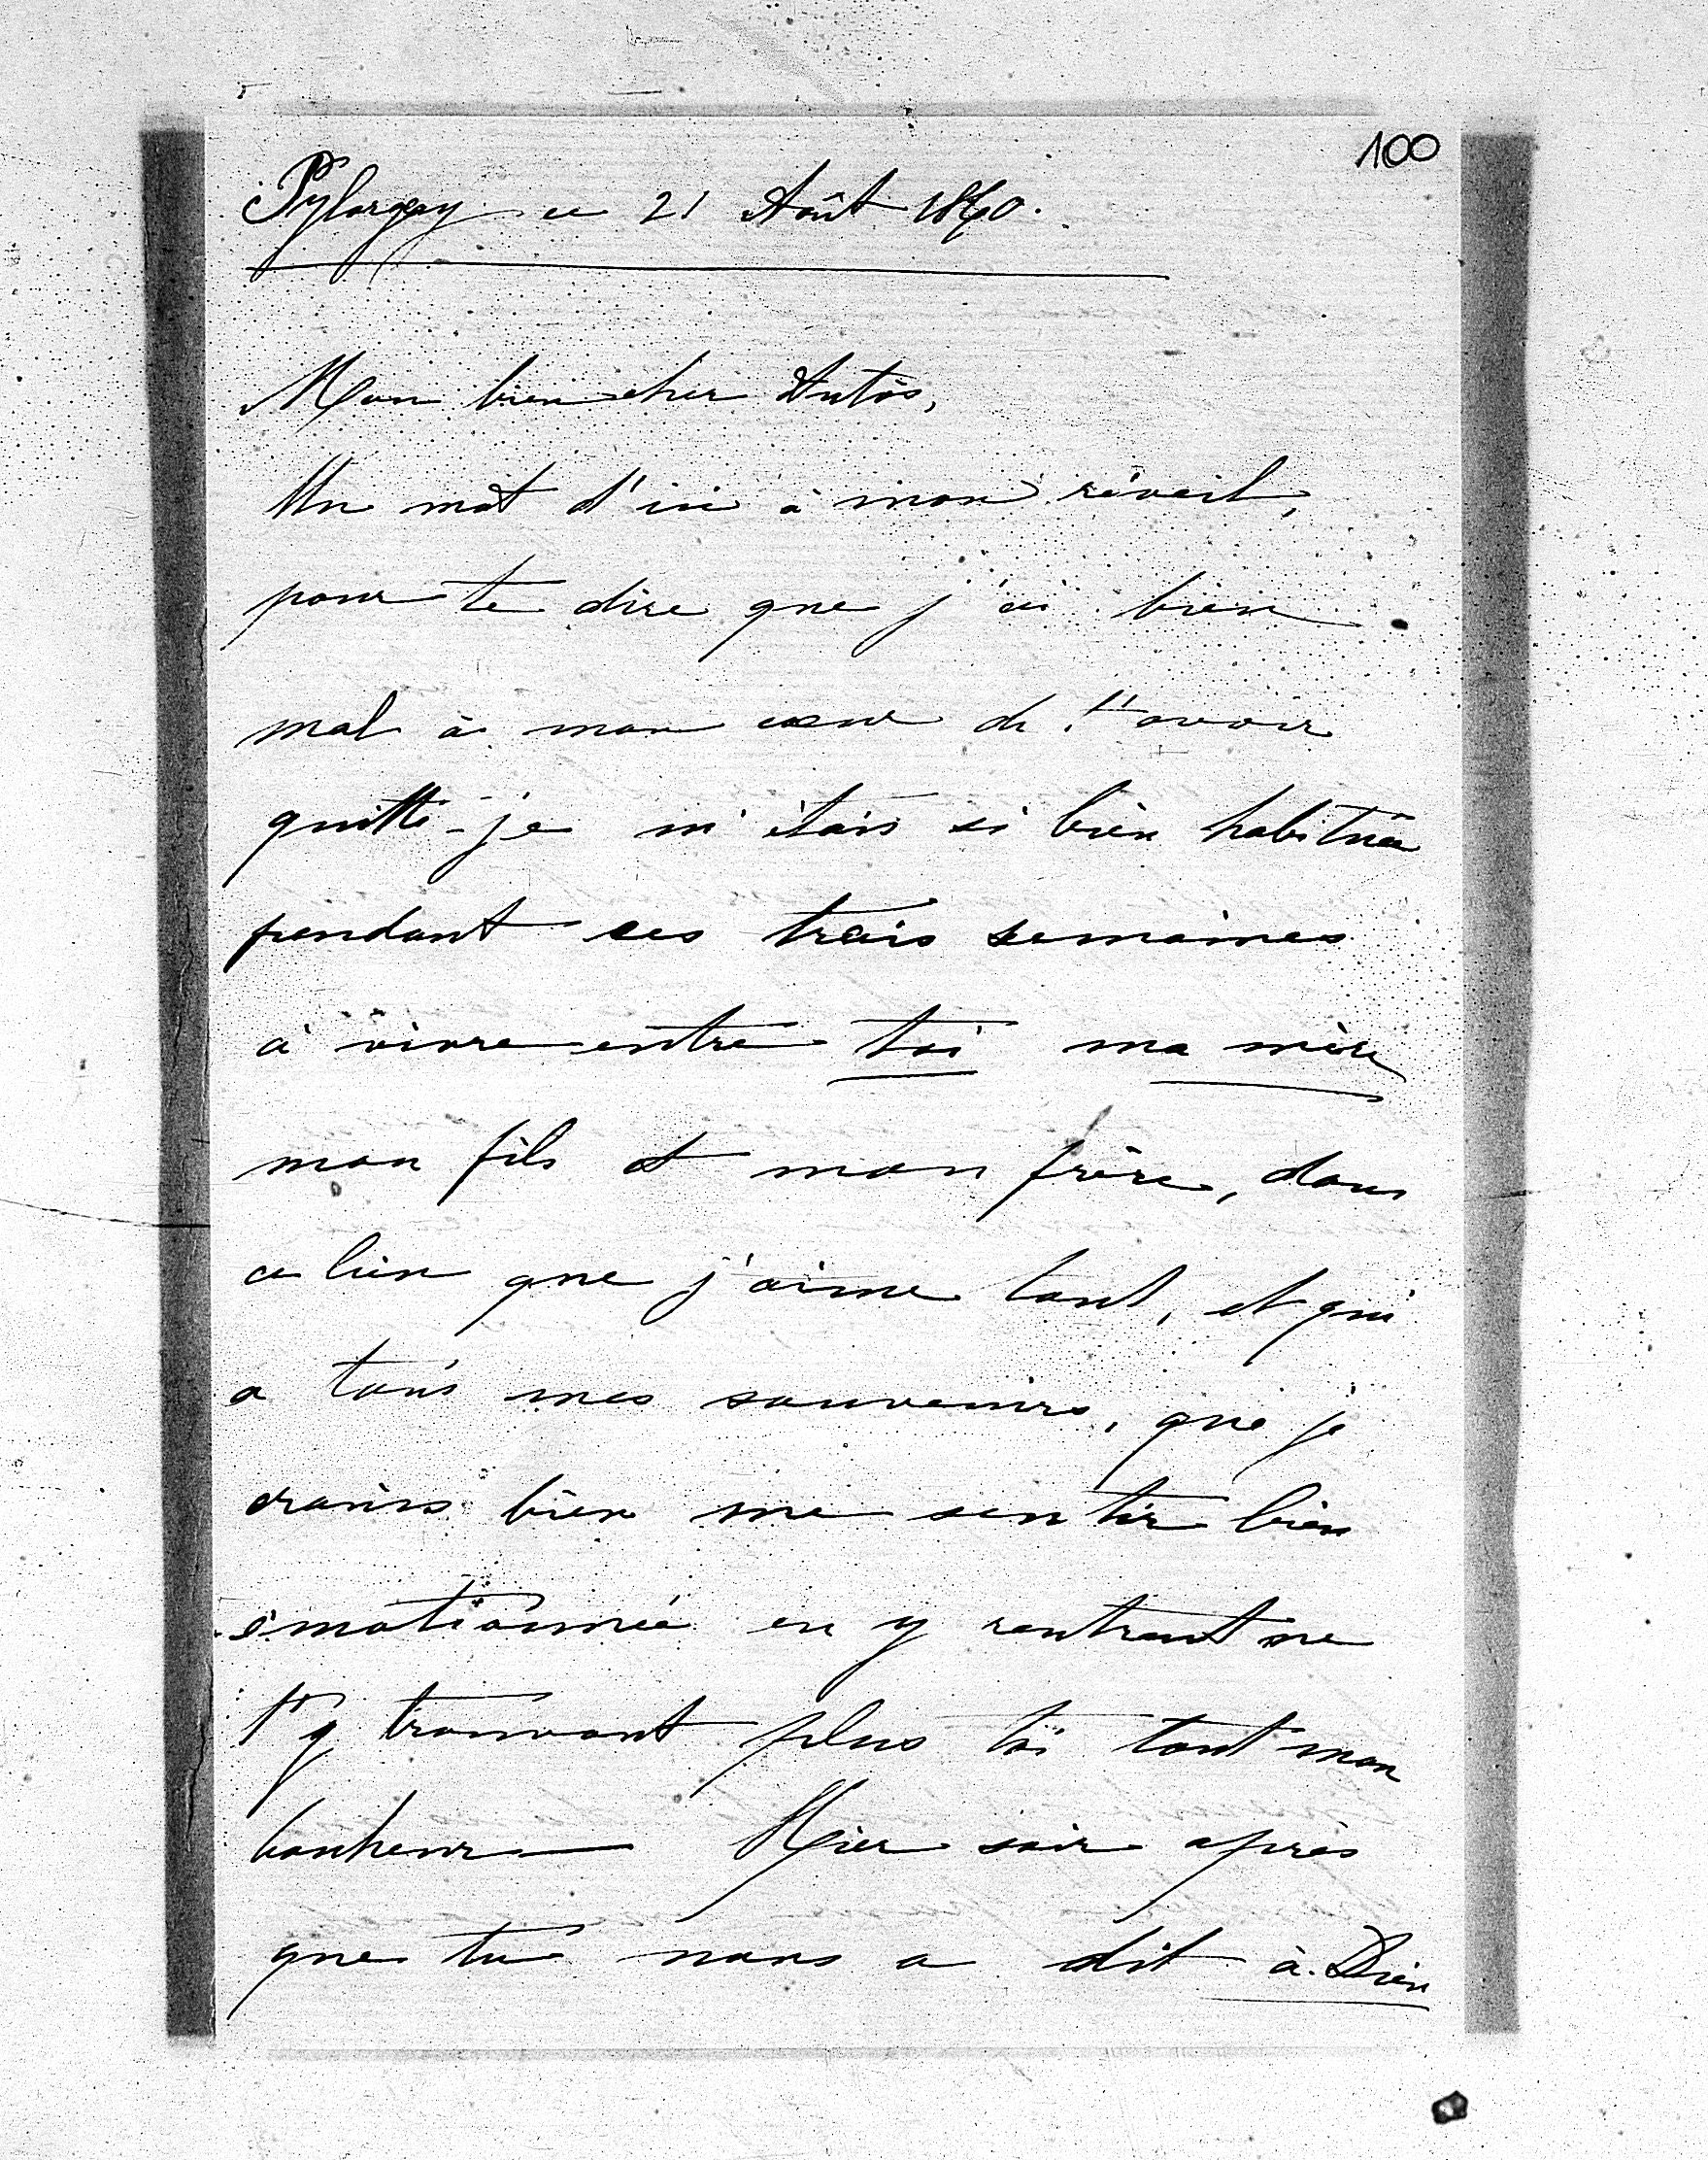 100
ce 21 Août 1860.
Mon bien cher Antós,
Un mot d'ici à mon réveil,
pour te dire que j'ai bien
mal à mon cœur de t'avoir
quitté - je m'étais si bien habituée
pendant ces trois semaines
à vivre entre toi ma mère
mon fils et mon frère, dans
ce lieu que j'aime tant, et qui
a tous mes souvenirs, que je
crains bien me sentir bien
émotionnée en y rentrant ne
t'y trouvant plus toi tout mon
bonheur — Hier soir après
que tu nous a dit à Dieu